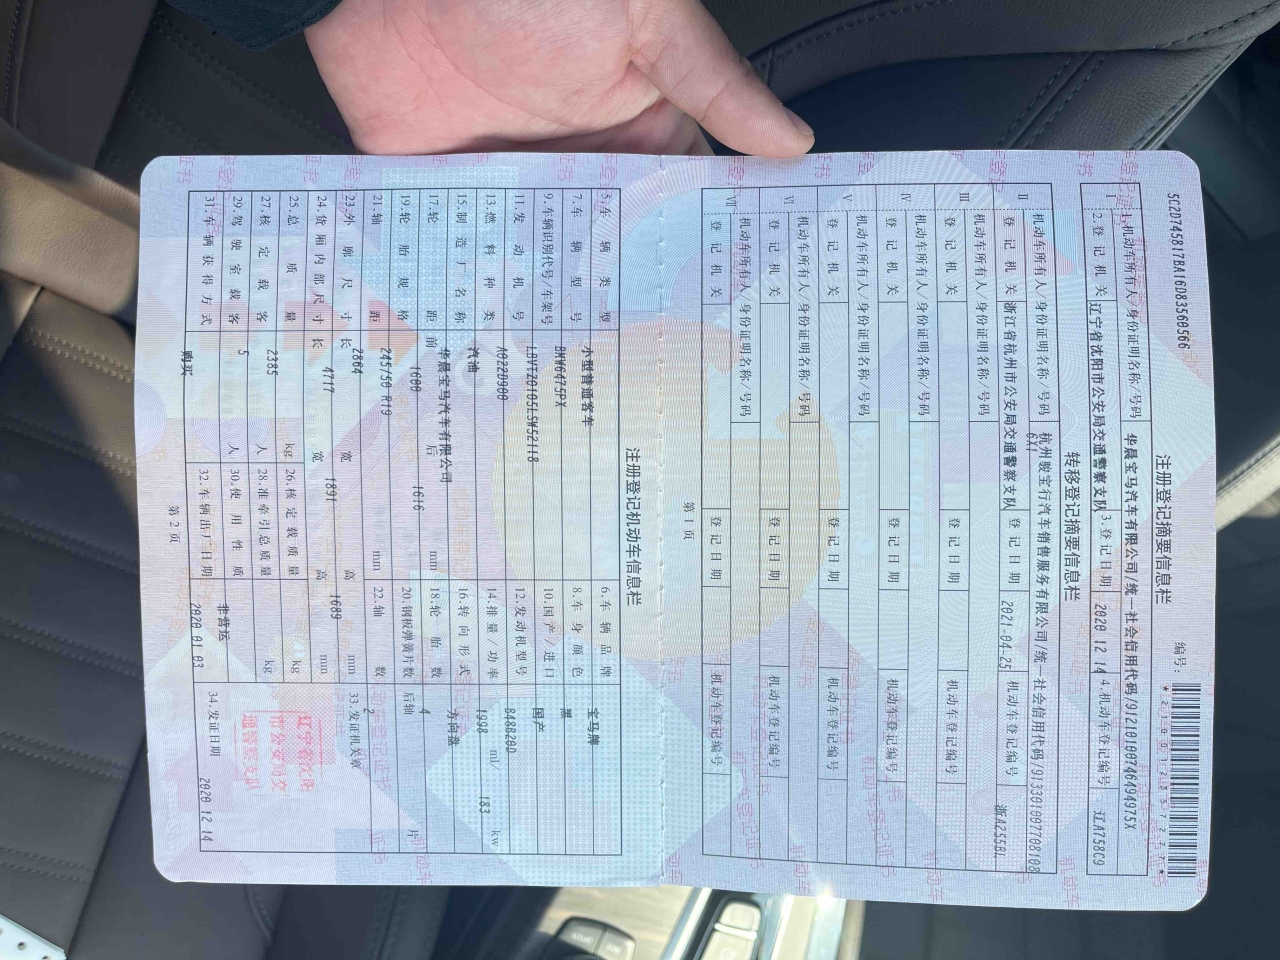 5C2D745817BA16D83560566
注册登记摘要信息栏
编号:
*210012357277*
I
1.机动车所有人/身份证明名称/号码 华晨宝马汽车有限公司/统一社会信用代码/91210100746494975X
2.登记机关 辽宁省沈阳市公安局交通警察支队 3.登记日期 2020 12 14 4.机动车登记编号 辽A758C9
转移登记摘要信息栏
II
机动车所有人/身份证明名称/号码 杭州骏宝行汽车销售服务有限公司/统一社会信用代码/9133010077081086X1
登记机关 浙江省杭州市公安局交通警察支队 登记日期 2021-04-25 机动车登记编号 浙A255BL
III
机动车所有人/身份证明名称/号码
登记机关 登记日期 机动车登记编号
IV
机动车所有人/身份证明名称/号码
登记机关 登记日期 机动车登记编号
V
机动车所有人/身份证明名称/号码
登记机关 登记日期 机动车登记编号
VI
机动车所有人/身份证明名称/号码
登记机关 登记日期 机动车登记编号
VII
机动车所有人/身份证明名称/号码
登记机关 登记日期 机动车登记编号
第1页
注册登记机动车信息栏
5.车辆类型 小型普通客车 6.车辆品牌 宝马牌
7.车辆型号 BMW6475PX 8.车身颜色 黑
9.车辆识别代号/车架号 LBVTZ0105LSW52118 10.国产/进口 国产
11.发动机号 A022D900 12.发动机型号 B48B20D
13.燃料种类 汽油 14.排量/功率 1998 ml/ 183 kw
15.制造厂名称 华晨宝马汽车有限公司 16.转向形式 方向盘
17.轮距 前 1600 后 1616 mm 18.轮胎数 4
19.轮胎规格 245/50 R19 20.钢板弹簧片数 后轴 片
21.轴距 2864 mm 22.轴数 2
23.外廓尺寸 长 4717 宽 1891 高 1689 mm 33.发证机关章
24.货厢内部尺寸 长 宽 高 mm
25.总质量 2385 kg 26.核定载质量 kg
27.核定载客 5 人 28.准牵引总质量 kg
29.驾驶室载客 人 30.使用性质 非营运
31.车辆获得方式 购买 32.车辆出厂日期 2020 01 03 34.发证日期 2020 12 14
辽宁省沈阳
市公安局交
通警察支队
第2页